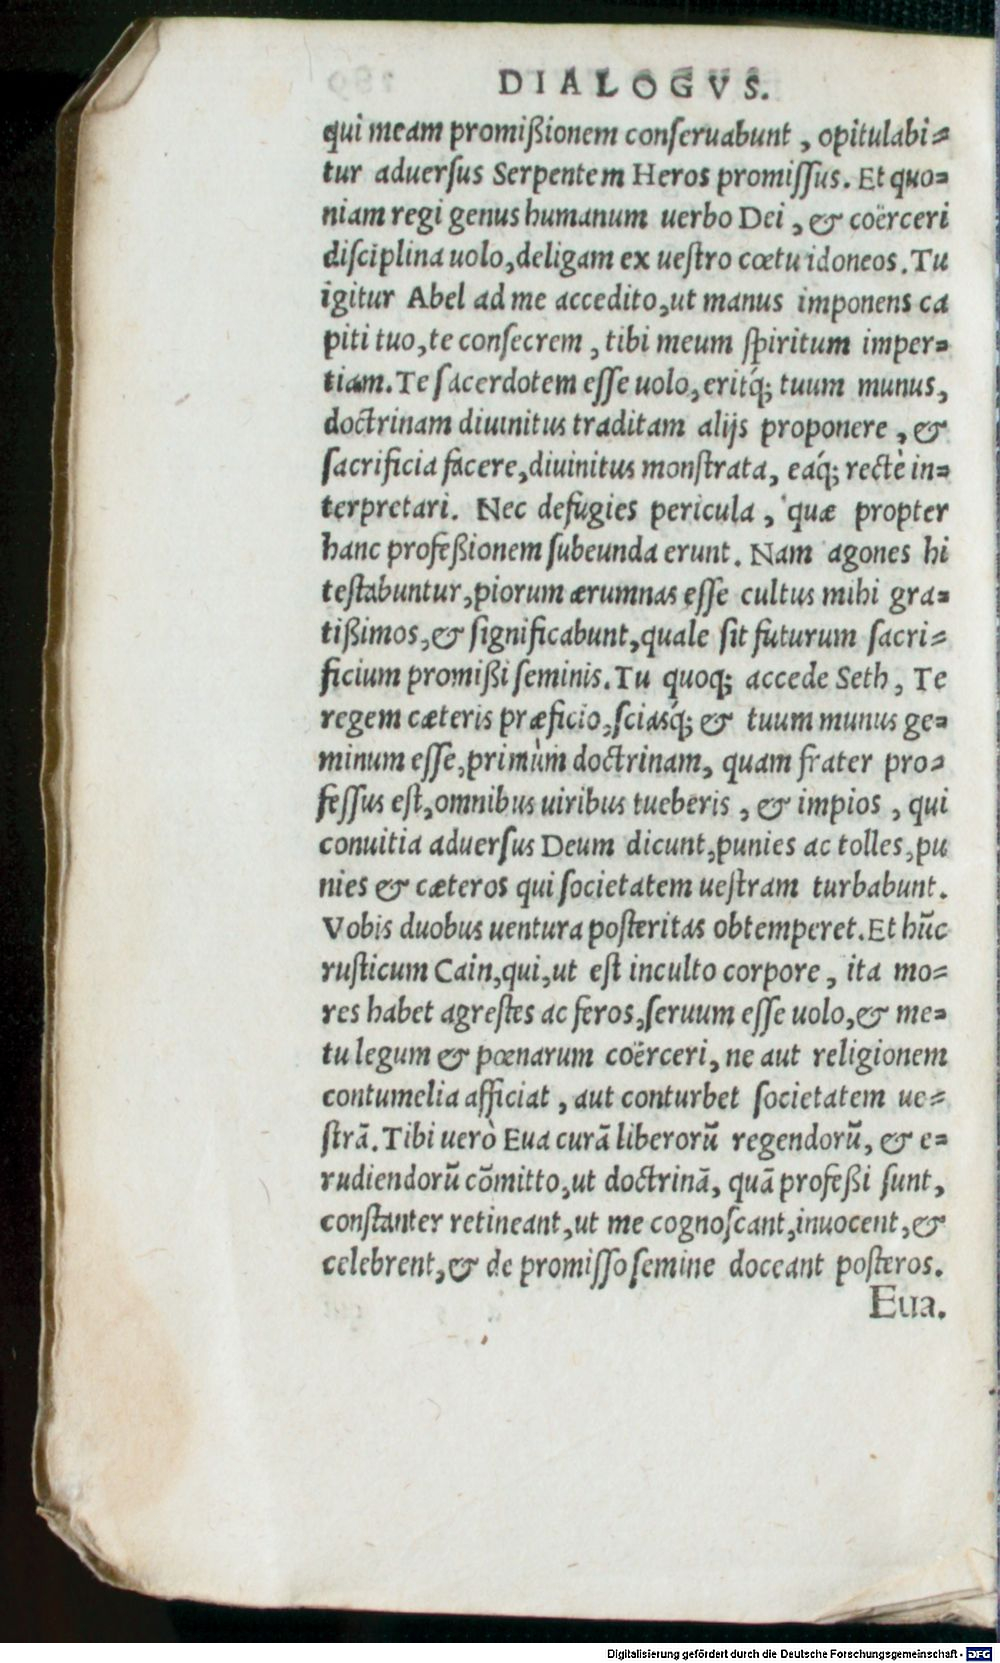 DIALOGVS.
qui meam promißionem conſeruabunt, opitulabi=
tur aduerſus Serpentem Heros promiſſus. Et quo=
niam regi genus humanum uerbo Dei, & coërceri
diſciplina uolo, deligam ex ueſtro cœtu idoneos. Tu
igitur Abel ad me accedito, ut manus imponens ca
piti tuo, te conſecrem, tibi meum ſpiritum imper=
tiam. Te ſacerdotem eſſe uolo, eritq́; tuum munus,
doctrinam diuinitus traditam alijs proponere, &
ſacrificia facere, diuinitus monſtrata, eaq́; rectè in=
terpretari. Nec defugies pericula, quæ propter
hanc profeßionem ſubeunda erunt. Nam agones hi
teſtabuntur, piorum ærumnas eſſe cultus mihi gra=
tißimos, & ſignificabunt, quale ſit futurum ſacri=
ficium promißi ſeminis. Tu quoq; accede Seth, Te
regem cæteris præficio, ſciasq́; & tuum munus ge=
minum eſſe, primùm doctrinam, quam frater pro=
feſſus eſt, omnibus uiribus tueberis, & impios, qui
conuitia aduerſus Deum dicunt, punies ac tolles, pu
nies & cæteros qui ſocietatem ueſtram turbabunt.
Vobis duobus uentura poſteritas obtemperet. Et hũc
ruſticum Cain, qui, ut eſt inculto corpore, ita mo=
res habet agreſtes ac feros, ſeruum eſſe uolo, & me=
tu legum & pœnarum coërceri, ne aut religionem
contumelia afficiat, aut conturbet ſocietatem ue=
ſtrã. Tibi uerò Eua curã liberorũ regendorũ, & e=
rudiendorũ cõmitto, ut doctrinã, quã profeßi ſunt,
conſtanter retineant, ut me cognoſcant, inuocent, &
celebrent, & de promiſſo ſemine doceant poſteros.
Eua.
Digitalisierung gefördert durch die Deutsche Forschungsgemeinschaft - DFG